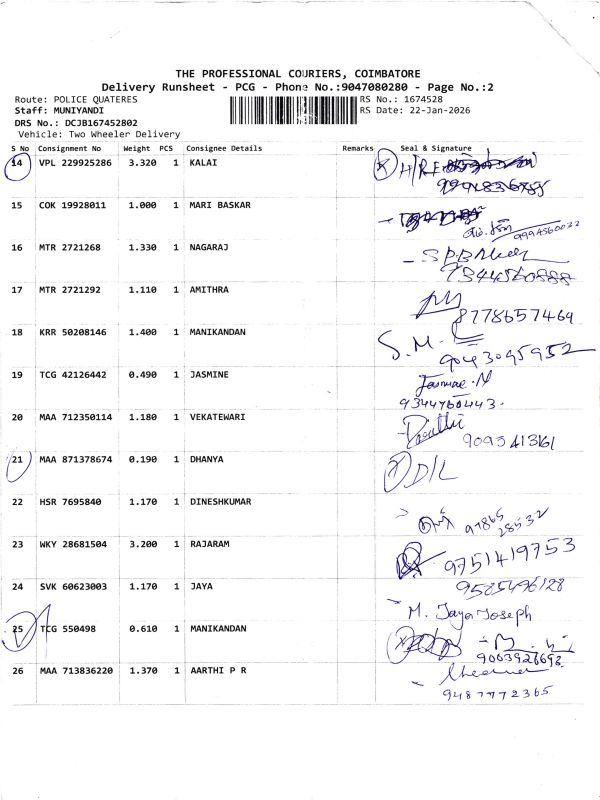 THE PROFESSIONAL COURIERS, COIMBATORE
Delivery Runsheet - PCG - Phone No.:9047080280 - Page No.:2
Route: POLICE QUATERES
Staff: MUNIYANDI
DRS No.: DCJB167452802
Vehicle: Two Wheeler Delivery
RS No.: 1674528
RS Date: 22-Jan-2026
S No Consignment No Weight PCS Consignee Details Remarks Seal & Signature
14 VPL 229925286 3.320 1 KALAI H/RE
15 COK 19928011 1.000 1 MARI BASKAR
9994560022
16 MTR 2721268 1.330 1 NAGARAJ
7344560888
17 MTR 2721292 1.110 1 AMITHRA
8778657469
18 KRR 50208146 1.400 1 MANIKANDAN S.M.
9043095952
19 TCG 42126442 0.490 1 JASMINE
9344760443.
20 MAA 712350114 1.180 1 VEKATEWARI
9095413161
21 MAA 871378674 0.190 1 DHANYA D/L
22 HSR 7695840 1.170 1 DINESHKUMAR
97865
28532
23 WKY 28681504 3.200 1 RAJARAM
9751419753
24 SVK 60623003 1.170 1 JAYA
9585496128
M. Jaya Joseph
25 TCG 550498 0.610 1 MANIKANDAN
9003926693
26 MAA 713836220 1.370 1 AARTHI P R
9487772365